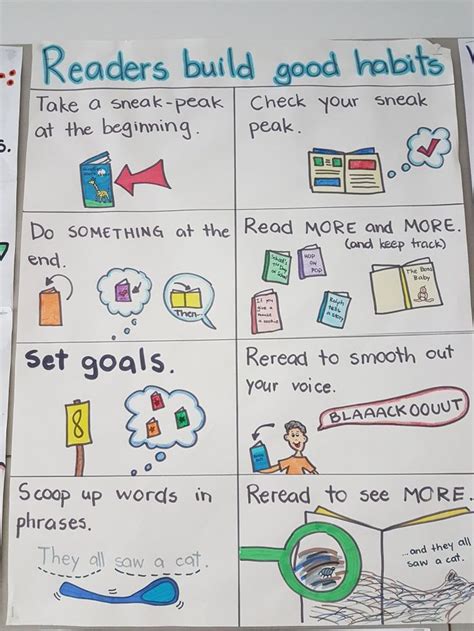 Readers build good habits
Take a sneak-peak
at the beginning.
Check your sneak
peak.
Do SOMETHING at the
end.
Then...
Read MORE and MORE.
(and keep track)
HOP
ON
POP
The Boss
Baby
If you
give a
mouse
a cookie
Ralph
tells
a story
Set goals.
8
Reread to smooth out
your voice.
BLAAACKOOUUT
Scoop up words in
phrases.
They all saw a cat.
Reread to see MORE.
...and they all
saw a cat.